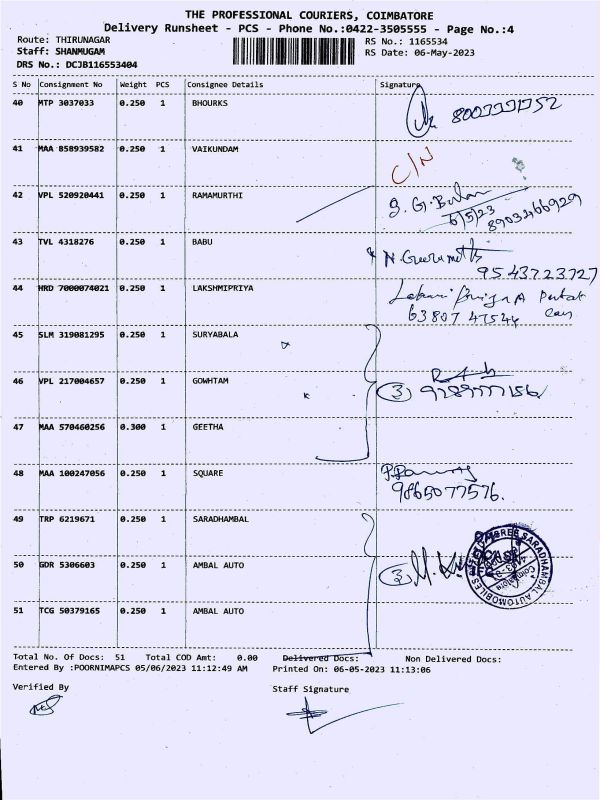 THE PROFESSIONAL COURIERS, COIMBATORE
Delivery Runsheet - PCS - Phone No.:0422-3505555 - Page No.:4
Route: THIRUNAGAR RS No.: 1165534
Staff: SHANMUGAM RS Date: 06-May-2023
DRS No.: DCJB116553404
S No Consignment No Weight PCS Consignee Details Signature
40 MTP 3037033 0.250 1 BHOURKS
41 MAA 858939582 0.250 1 VAIKUNDAM C/N
42 VPL 520920441 0.250 1 RAMAMURTHI
6/5/23
8903466929
43 TVL 4318276 0.250 1 BABU
9543723727
44 HRD 7000074021 0.250 1 LAKSHMIPRIYA
63807 47544
45 SLM 319081295 0.250 1 SURYABALA
46 VPL 217004657 0.250 1 GOWHTAM 3
47 MAA 570460256 0.300 1 GEETHA
48 MAA 100247056 0.250 1 SQUARE
9865077576.
49 TRP 6219671 0.250 1 SARADHAMBAL
SREE SARADHAMBAL AUTOMOBILES
50 GDR 5306603 0.250 1 AMBAL AUTO 3
51 TCG 50379165 0.250 1 AMBAL AUTO
Total No. Of Docs: 51 Total COD Amt: 0.00 Delivered Docs: Non Delivered Docs:
Entered By :POORNIMAPCS 05/06/2023 11:12:49 AM Printed On: 06-05-2023 11:13:06
Verified By Staff Signature